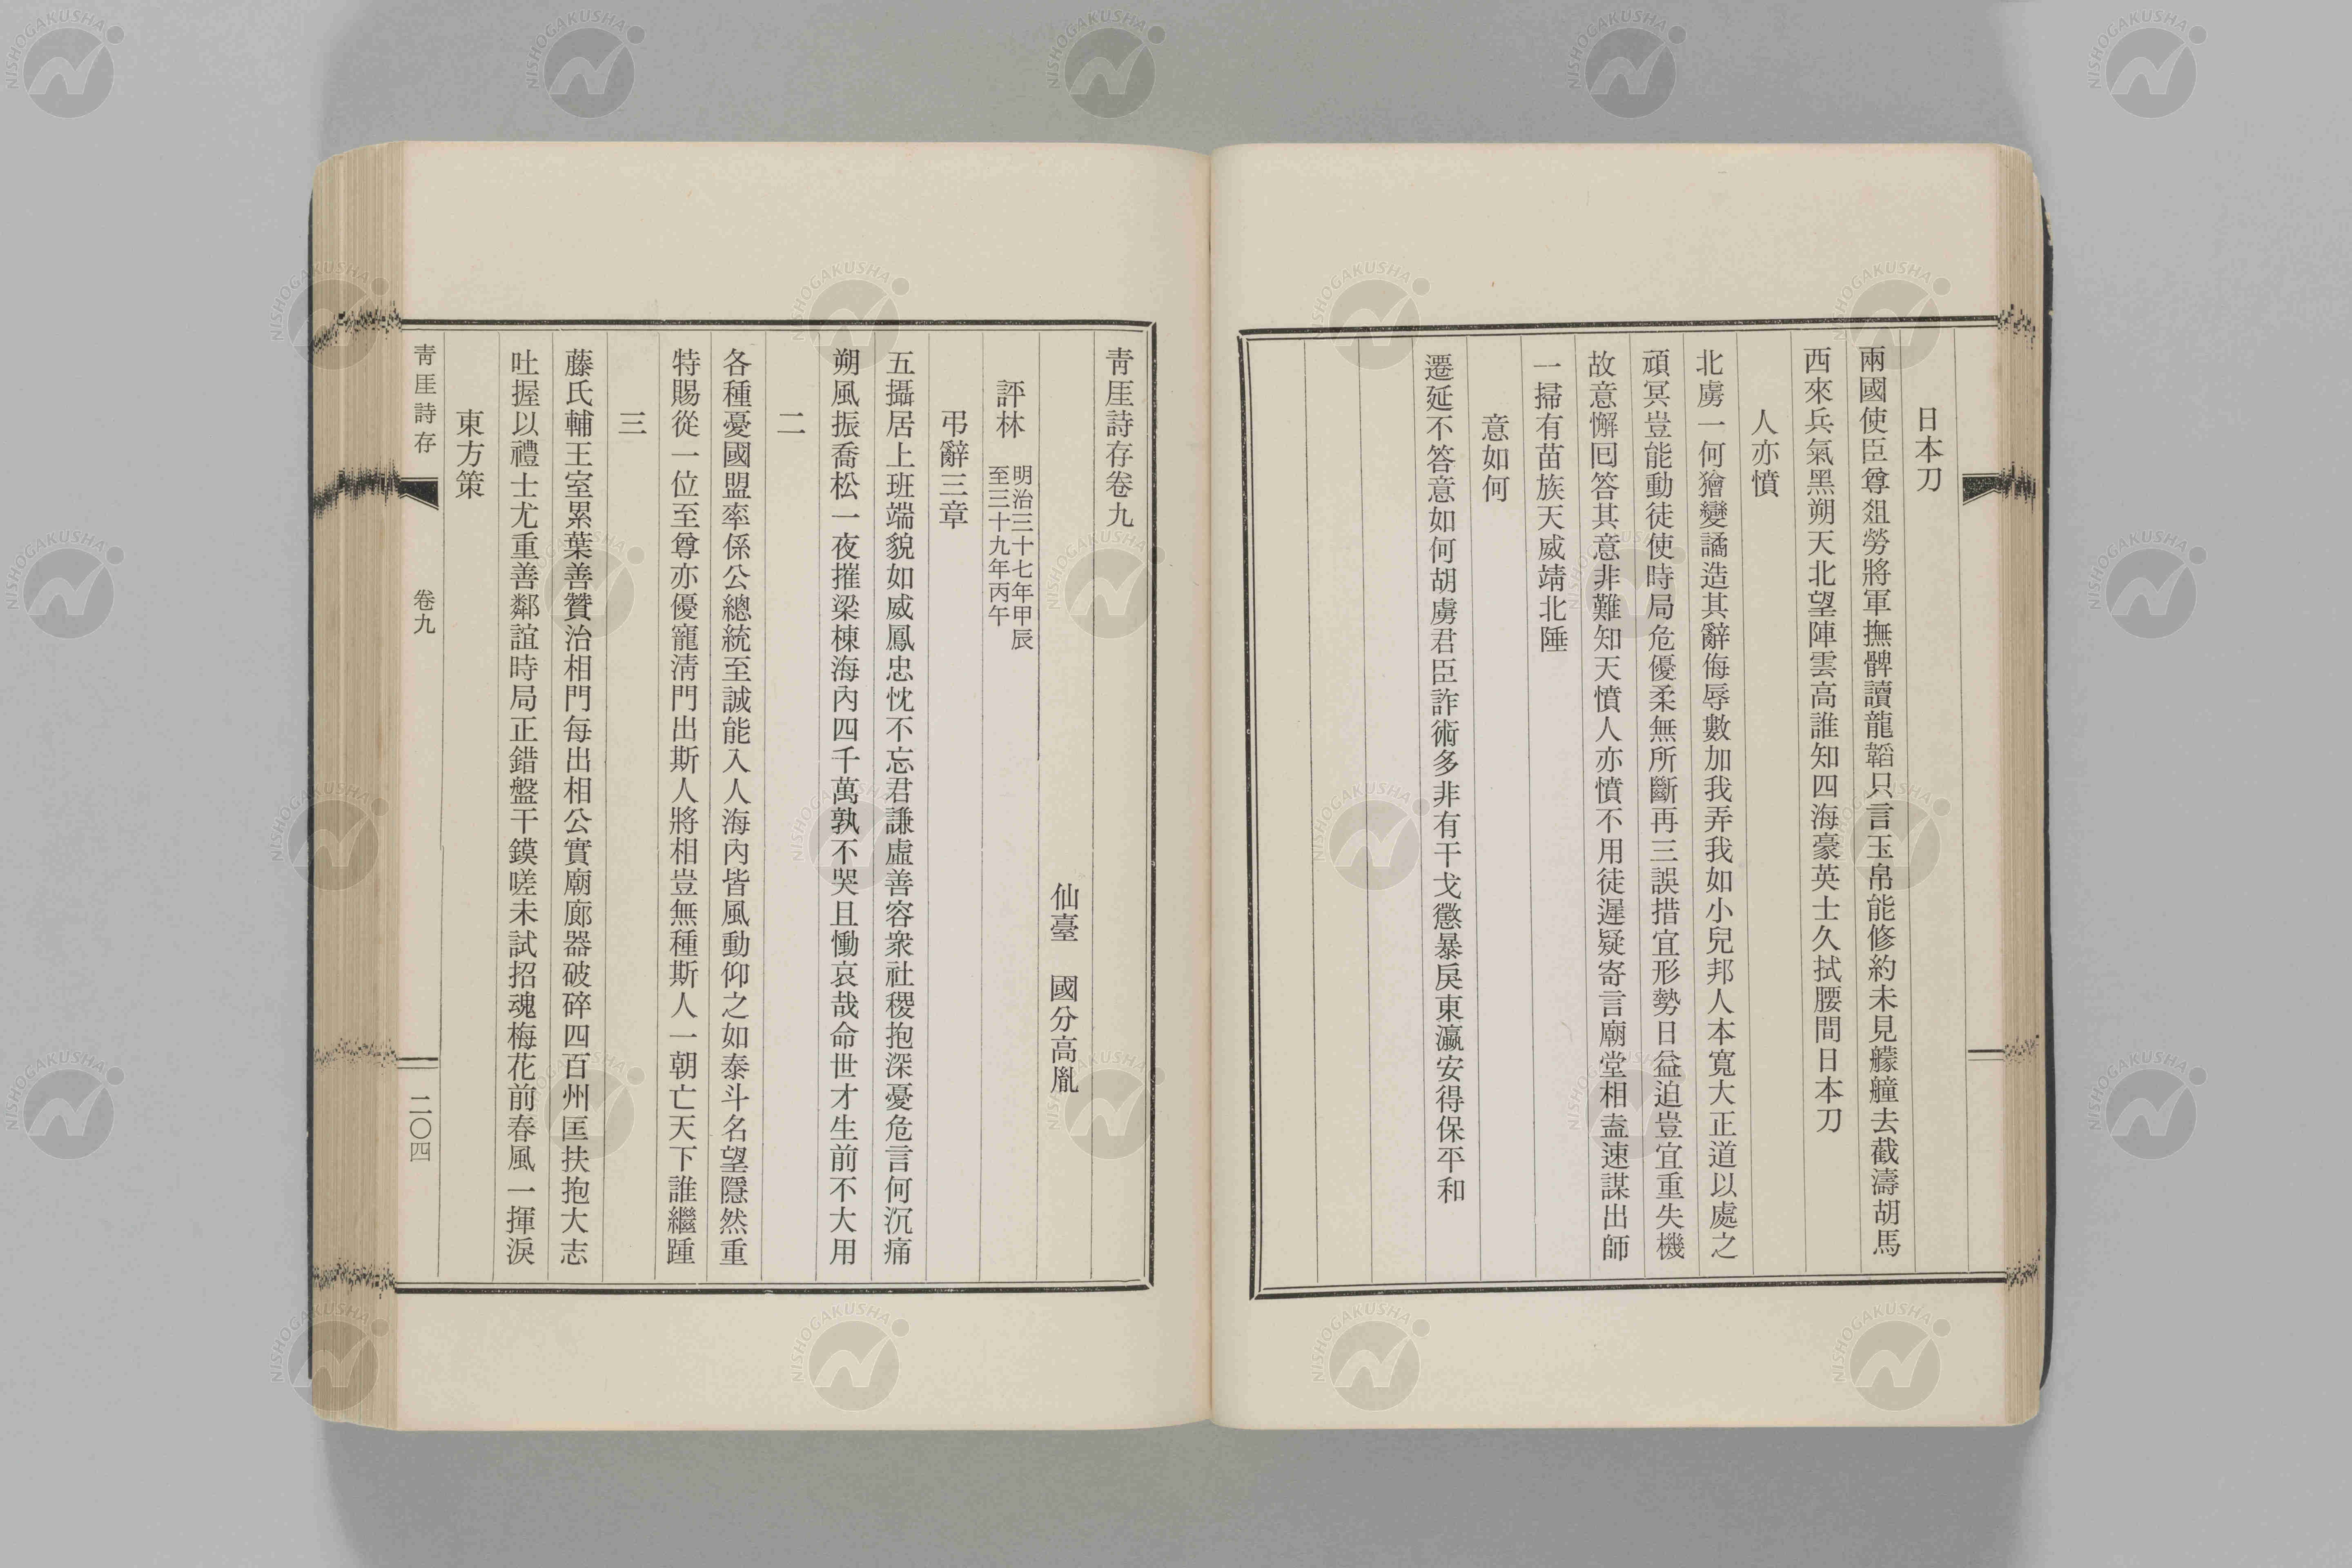 日本刀
兩國使臣尊爼勞將軍撫髀讀龍韜只言玉帛能修約未見艨艟去截濤胡馬
西來兵氣黑朔天北望陣雲高誰知四海豪英士久拭腰間日本刀
人亦憤
北虜一何獪變譎造其辭侮辱數加我弄我如小兒邦人本寬大正道以處之
頑冥豈能動徒使時局危優柔無所斷再三誤措宜形勢日益迫豈宜重失機
故意懈囘答其意非難知天憤人亦憤不用徒遲疑寄言廟堂相盍速謀出師
一掃有苗族天威靖北陲
意如何
遷延不答意如何胡虜君臣詐術多非有干戈懲暴戾東瀛安得保平和
靑厓詩存卷九
仙臺 國分高胤
評林 明治三十七年甲辰
至三十九年丙午
弔辭三章
五攝居上班端貌如威鳳忠忱不忘君謙虛善容衆社稷抱深憂危言何沉痛
朔風振喬松一夜摧梁棟海內四千萬孰不哭且慟哀哉命世才生前不大用
二
各種憂國盟率係公總統至誠能入人海內皆風動仰之如泰斗名望隱然重
特賜從一位至尊亦優寵淸門出斯人將相豈無種斯人一朝亡天下誰繼踵
三
藤氏輔王室累葉善贊治相門每出相公實廟廊器破碎四百州匡扶抱大志
吐握以禮士尤重善鄰誼時局正錯盤干鏌嗟未試招魂梅花前春風一揮淚
東方策
靑厓詩存 卷九 二〇四
NISHOGAKUSHA